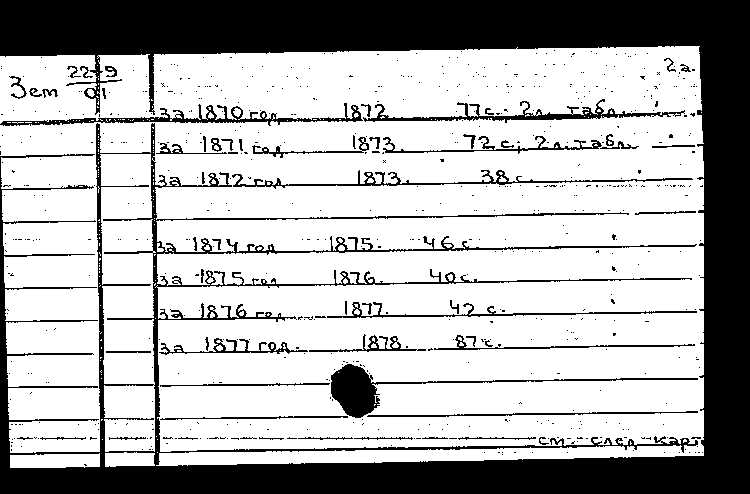 2а.
Зет 22-9
01
за 1870 год 1872 77с.; 2л. табл.
за 1871 год 1873. 72 с.; 2л. табл.
за 1872 год 1873. 38 с.
за 1874 год 1875. 46 с.
за 1875 год 1876. 40 с.
за 1876 год 1877. 42 с.
за 1877 год. 1878. 87 с.
см. след карт